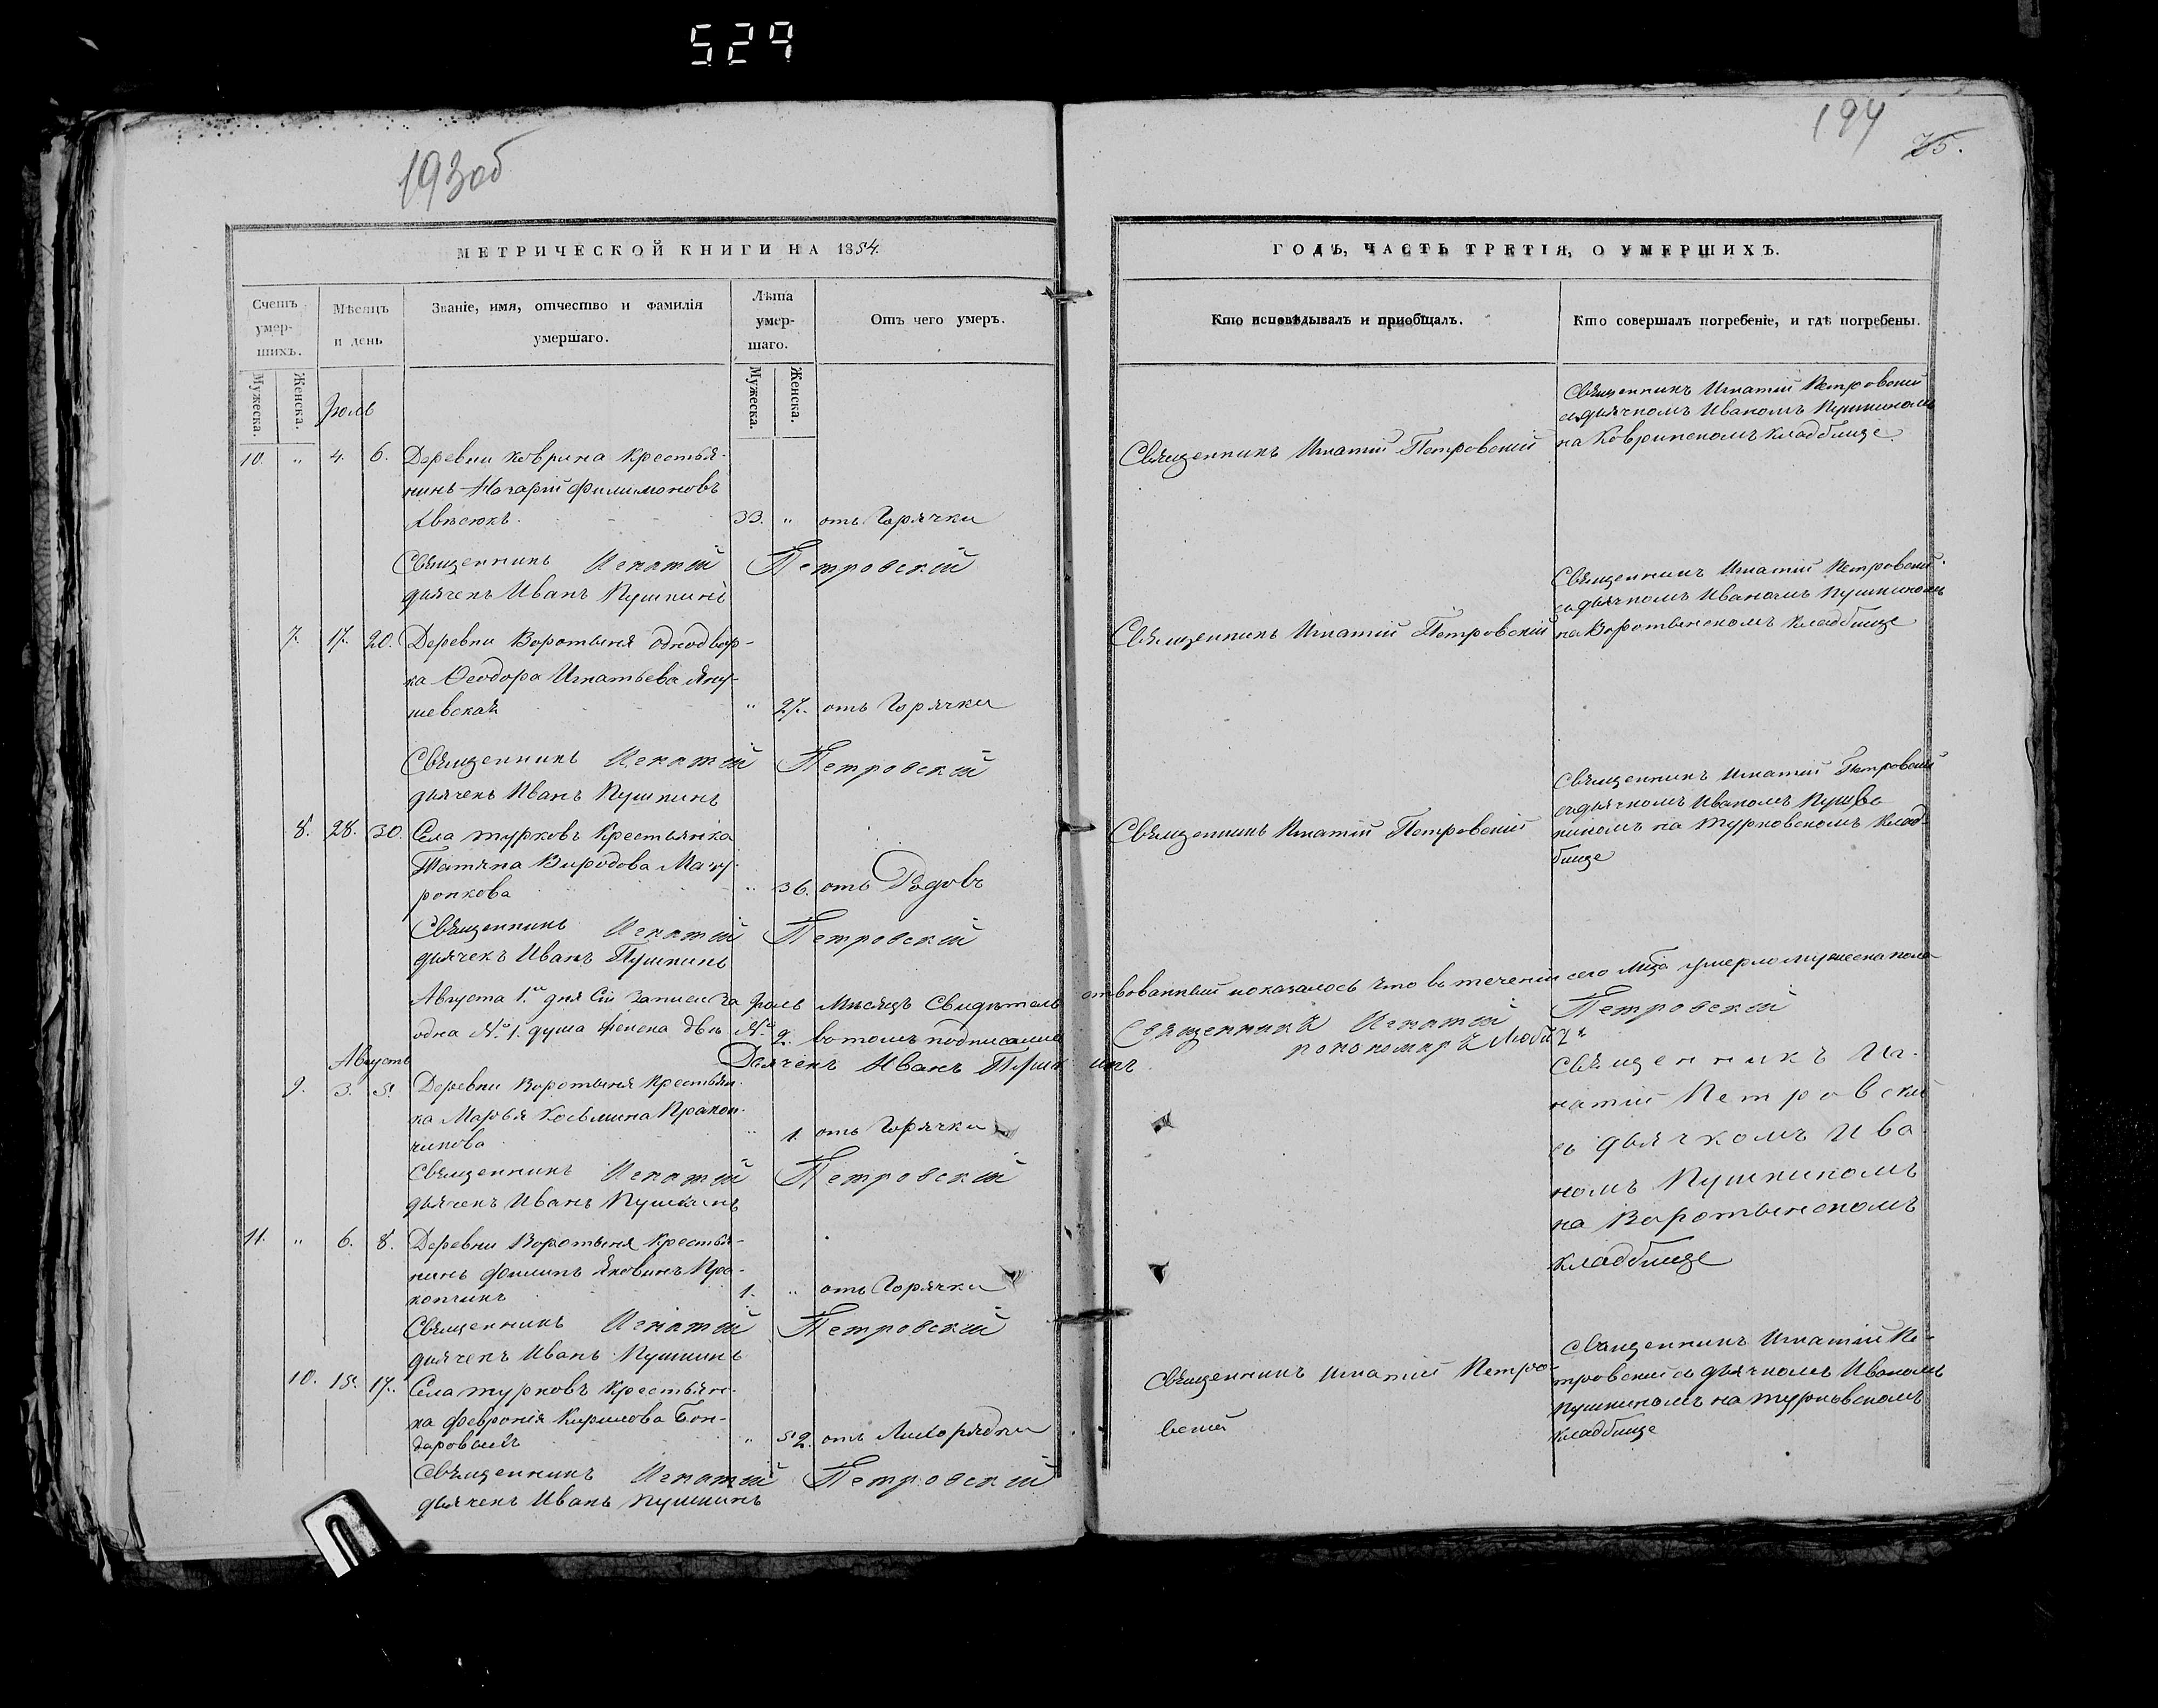 529
193об
194
75.
МЕТРИЧЕСКОЙ КНИГИ НА 1854.
ГОДЪ, ЧАСТЬ ТРЕТІЯ, О УМЕРШИХЪ.
Счетъ умер-шихъ.
Мѣсяцъ и день
Званіе, имя, отчество и фамилія умершаго.
Лѣта умер-шаго.
Отъ чего умеръ.
Кто исповѣдывалъ и пріобщалъ.
Кто совершалъ погребеніе, и гдѣ погребены.
Мужеска.
Женска.
Мужеска.
Женска.
Іюль
10. " 4. 6. Деревни Коврина Крестья-
нинъ Назарій Филимоновъ
33. " отъ Горячки
Священникъ Игнатій Петровскій
Священникъ Игнатій Петровскій
съ дьячкомъ Иваномъ Пушкиномъ
на Ковринскомъ кладбище.
Священникъ Игнатій Петровскій
дьячекъ Иванъ Пушкинъ
7. 17. 20. Деревни Воротыня однодвор-
ка Ѳеодора Игнатьева Яну-
шевская " 27. отъ Горячки
Священникъ Игнатій Петровскій
Священникъ Игнатій Петровскій
съ дьячкомъ Иваномъ Пушкиномъ
на Воротынскомъ кладбище
Священникъ Игнатій Петровскій
дьячекъ Иванъ Пушкинъ
8. 28. 30. Села Турковъ Крестьянка
Татьяна Виродова Мазу-
ронкова " 36. отъ Родовъ
Священникъ Игнатій Петровскій
Священникъ Игнатій Петровскій
съ дьячкомъ Иваномъ
киномъ на Турковскомъ клад-
бище
Священникъ Игнатій Петровскій
дьячекъ Иванъ Пушкинъ
Августа 1го дня Сіи записи за Іюль Мѣсяцъ Свидѣтельствованный и оказалось что въ теченіи сего Мца умерло мужеска пола
одна № 1. душа Женска двѣ № 2. въ томъ подписались
Священникъ Игнатій Петровскій
Дьячекъ Иванъ Пушкинъ
Августъ
9. 3. 5. Деревни Воротыня Крестьян-
ка Марья Косьмина Пракоп-
чикова " 1. отъ Горячки
Священникъ Иг-
натій Петровскій
съ дьячкомъ Ива-
номъ Пушкиномъ
на Воротынскомъ
кладбище
Священникъ Игнатій Петровскій
дьячекъ Иванъ Пушкинъ
11. " 6. 8. Деревни Воротыня Крестья-
нинъ Филипъ Яковинъ Пра-
копчикъ 1. " отъ Горячки
Священникъ Игнатій Петровскій
дьячекъ Иванъ Пушкинъ
10. 15. 17. Села Турковъ Крестьян-
ка Февронія Кирилова Бон-
даровая " 52. отъ Лихорядки
Священникъ Игнатій Петро-
вскій
Священникъ Игнатій Пе-
тровскій съ дьячкомъ Иваномъ
Пушкиномъ на Турковскомъ
кладбище
Священникъ Игнатій Петровскій
дьячекъ Иванъ Пушкинъ